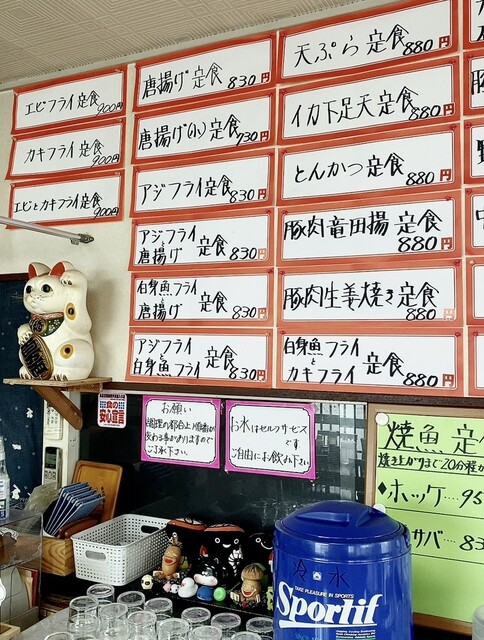 エビフライ定食 900円
カキフライ定食 900円
エビとカキフライ定食 900円
唐揚げ定食 830円
唐揚げ(小)定食 730円
アジフライ定食 830円
アジフライと唐揚げ 定食 830円
白身魚フライと唐揚げ 定食 830円
アジフライと白身魚フライ 定食 830円
天ぷら定食 880円
イカ下足天定食 880円
とんかつ定食 880円
豚肉竜田揚定食 880円
豚肉生姜焼き定食 880円
白身魚フライとカキフライ 定食 880円
食の
安心宣言
お願い
調理の都合上順番が
変わる事がありますので
ご了承下さい。
お水はセルフサービス
です
ご自由にお飲み下さい
焼魚定
焼き上がりまで20分程
♦ホッケ…95
サバ…83
冷水
TAKE PLEASURE IN SPORTS
Sportif